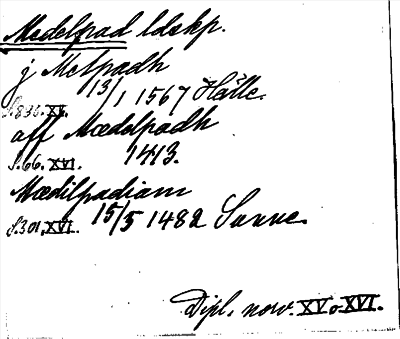 Medelpad ldskp.
j Melpadh
S. 835. XV. 13/1 1567 Hälle.
aff Mædelpadh
S. 66. XVI. 1413.
Mædilpadiam
S. 301. XVI. 15/5 1482 Sunne.
Dipl. norv. XV o XVI.